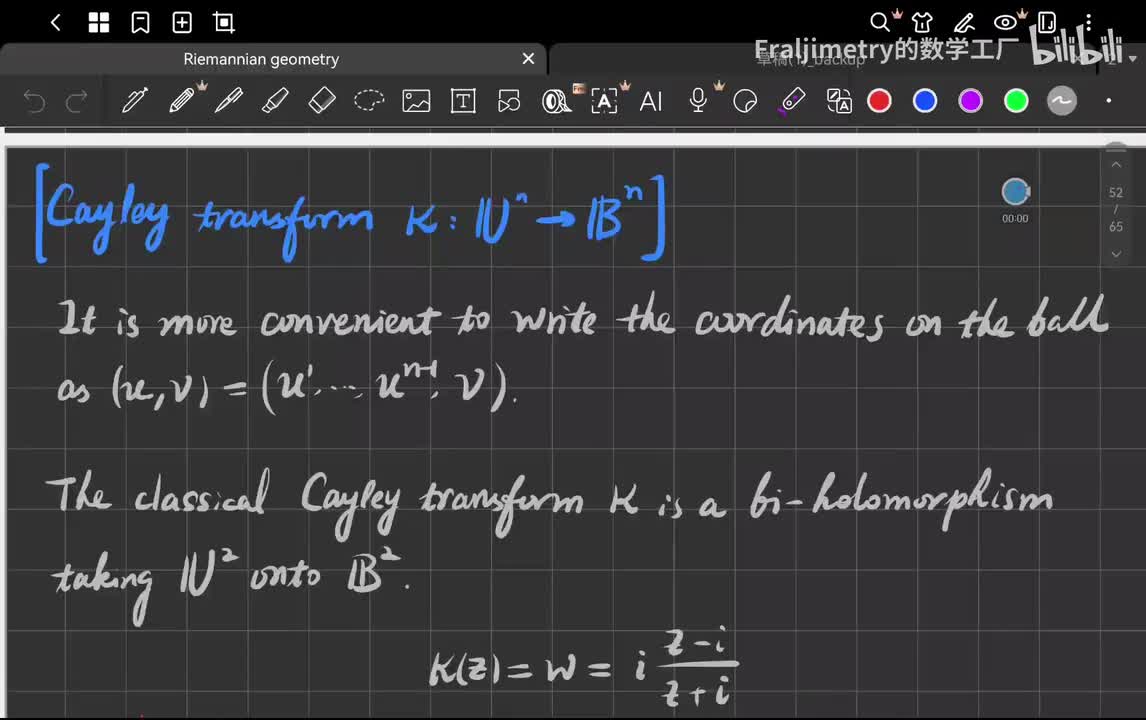 Fraljimetry的数学工厂 bilibili
Riemannian geometry
草稿(1)_backup
T A AI
00:00
52
/
65
[Cayley transform K : 𝕌ⁿ → 𝔹ⁿ]
It is more convenient to write the coordinates on the ball
as (u, v) = (u¹, ..., uⁿ⁻¹, v).
The classical Cayley transform K is a bi-holomorphism
taking 𝕌² onto 𝔹².
K(z) = w = i (z - i)/(z + i)